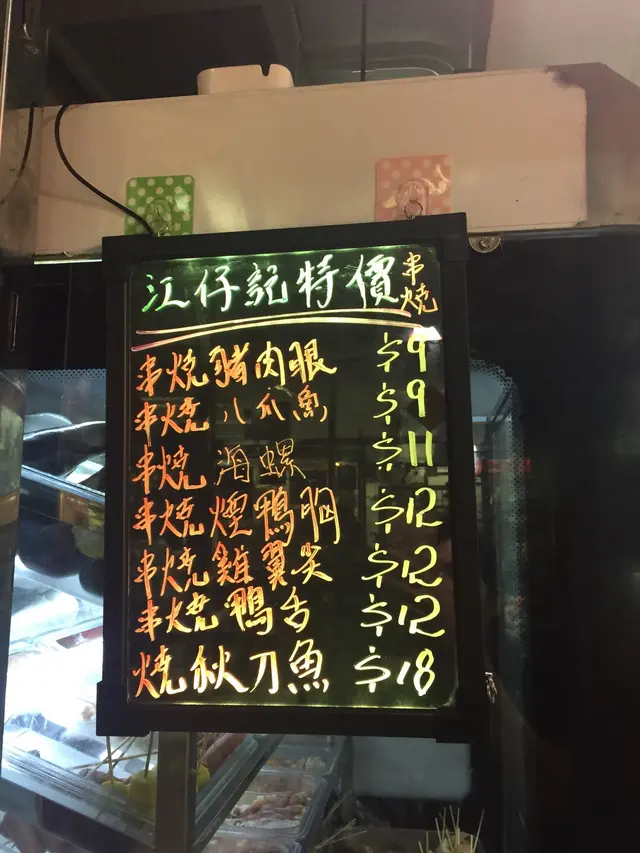 江仔記特價串燒
串燒豬肉眼 $9
串燒八爪魚 $9
串燒海螺 $11
串燒煙鴨胸 $12
串燒雞翼尖 $12
串燒鴨舌 $12
燒秋刀魚 $18